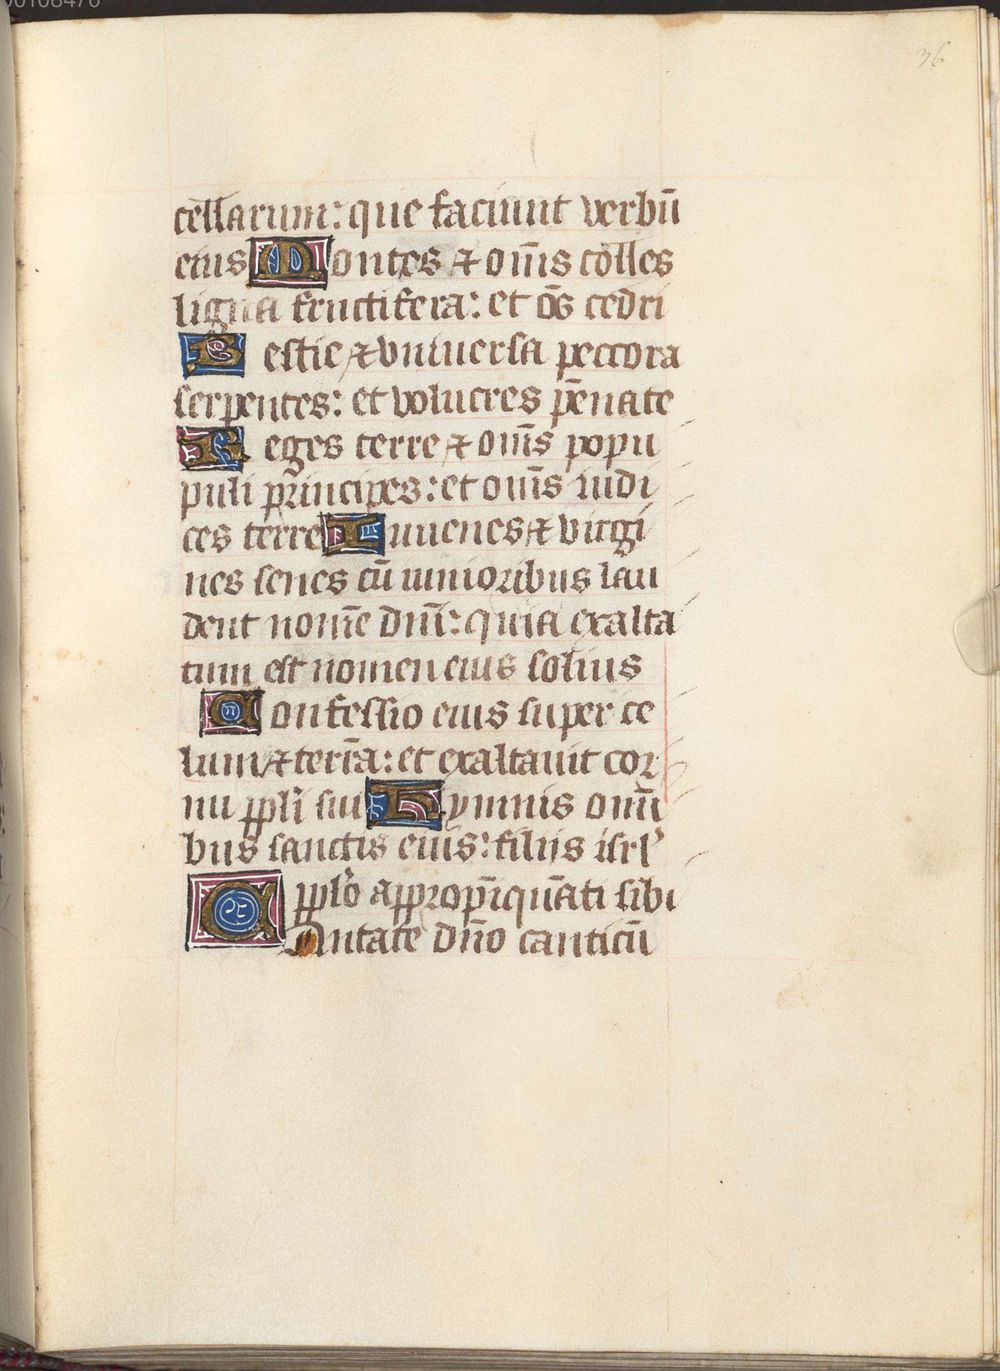 00108470
36
cellarum: que faciunt verbū
eius Montes ⁊ om̄s colles
ligna fructifera: et oēs cedri
Bestie ⁊ vniuersa peccora
serpentes: et volucres pēnate
Reges terre ⁊ om̄s popu
puli principes: et om̄s iudi
ces terre Iuuenes ⁊ virgi
nes senes cū iunioribus lau
dent nomē dn̄i: quia exalta
tum est nomen eius solius
Confessio eius super ce
lum ⁊ terrā: et exaltauit cor
nu ppl̄i sui Hymnis omī
bus sanctis eius: filijs isrl̛
ppl̄o appropīquāti sibi
Cantate dn̄o canticū